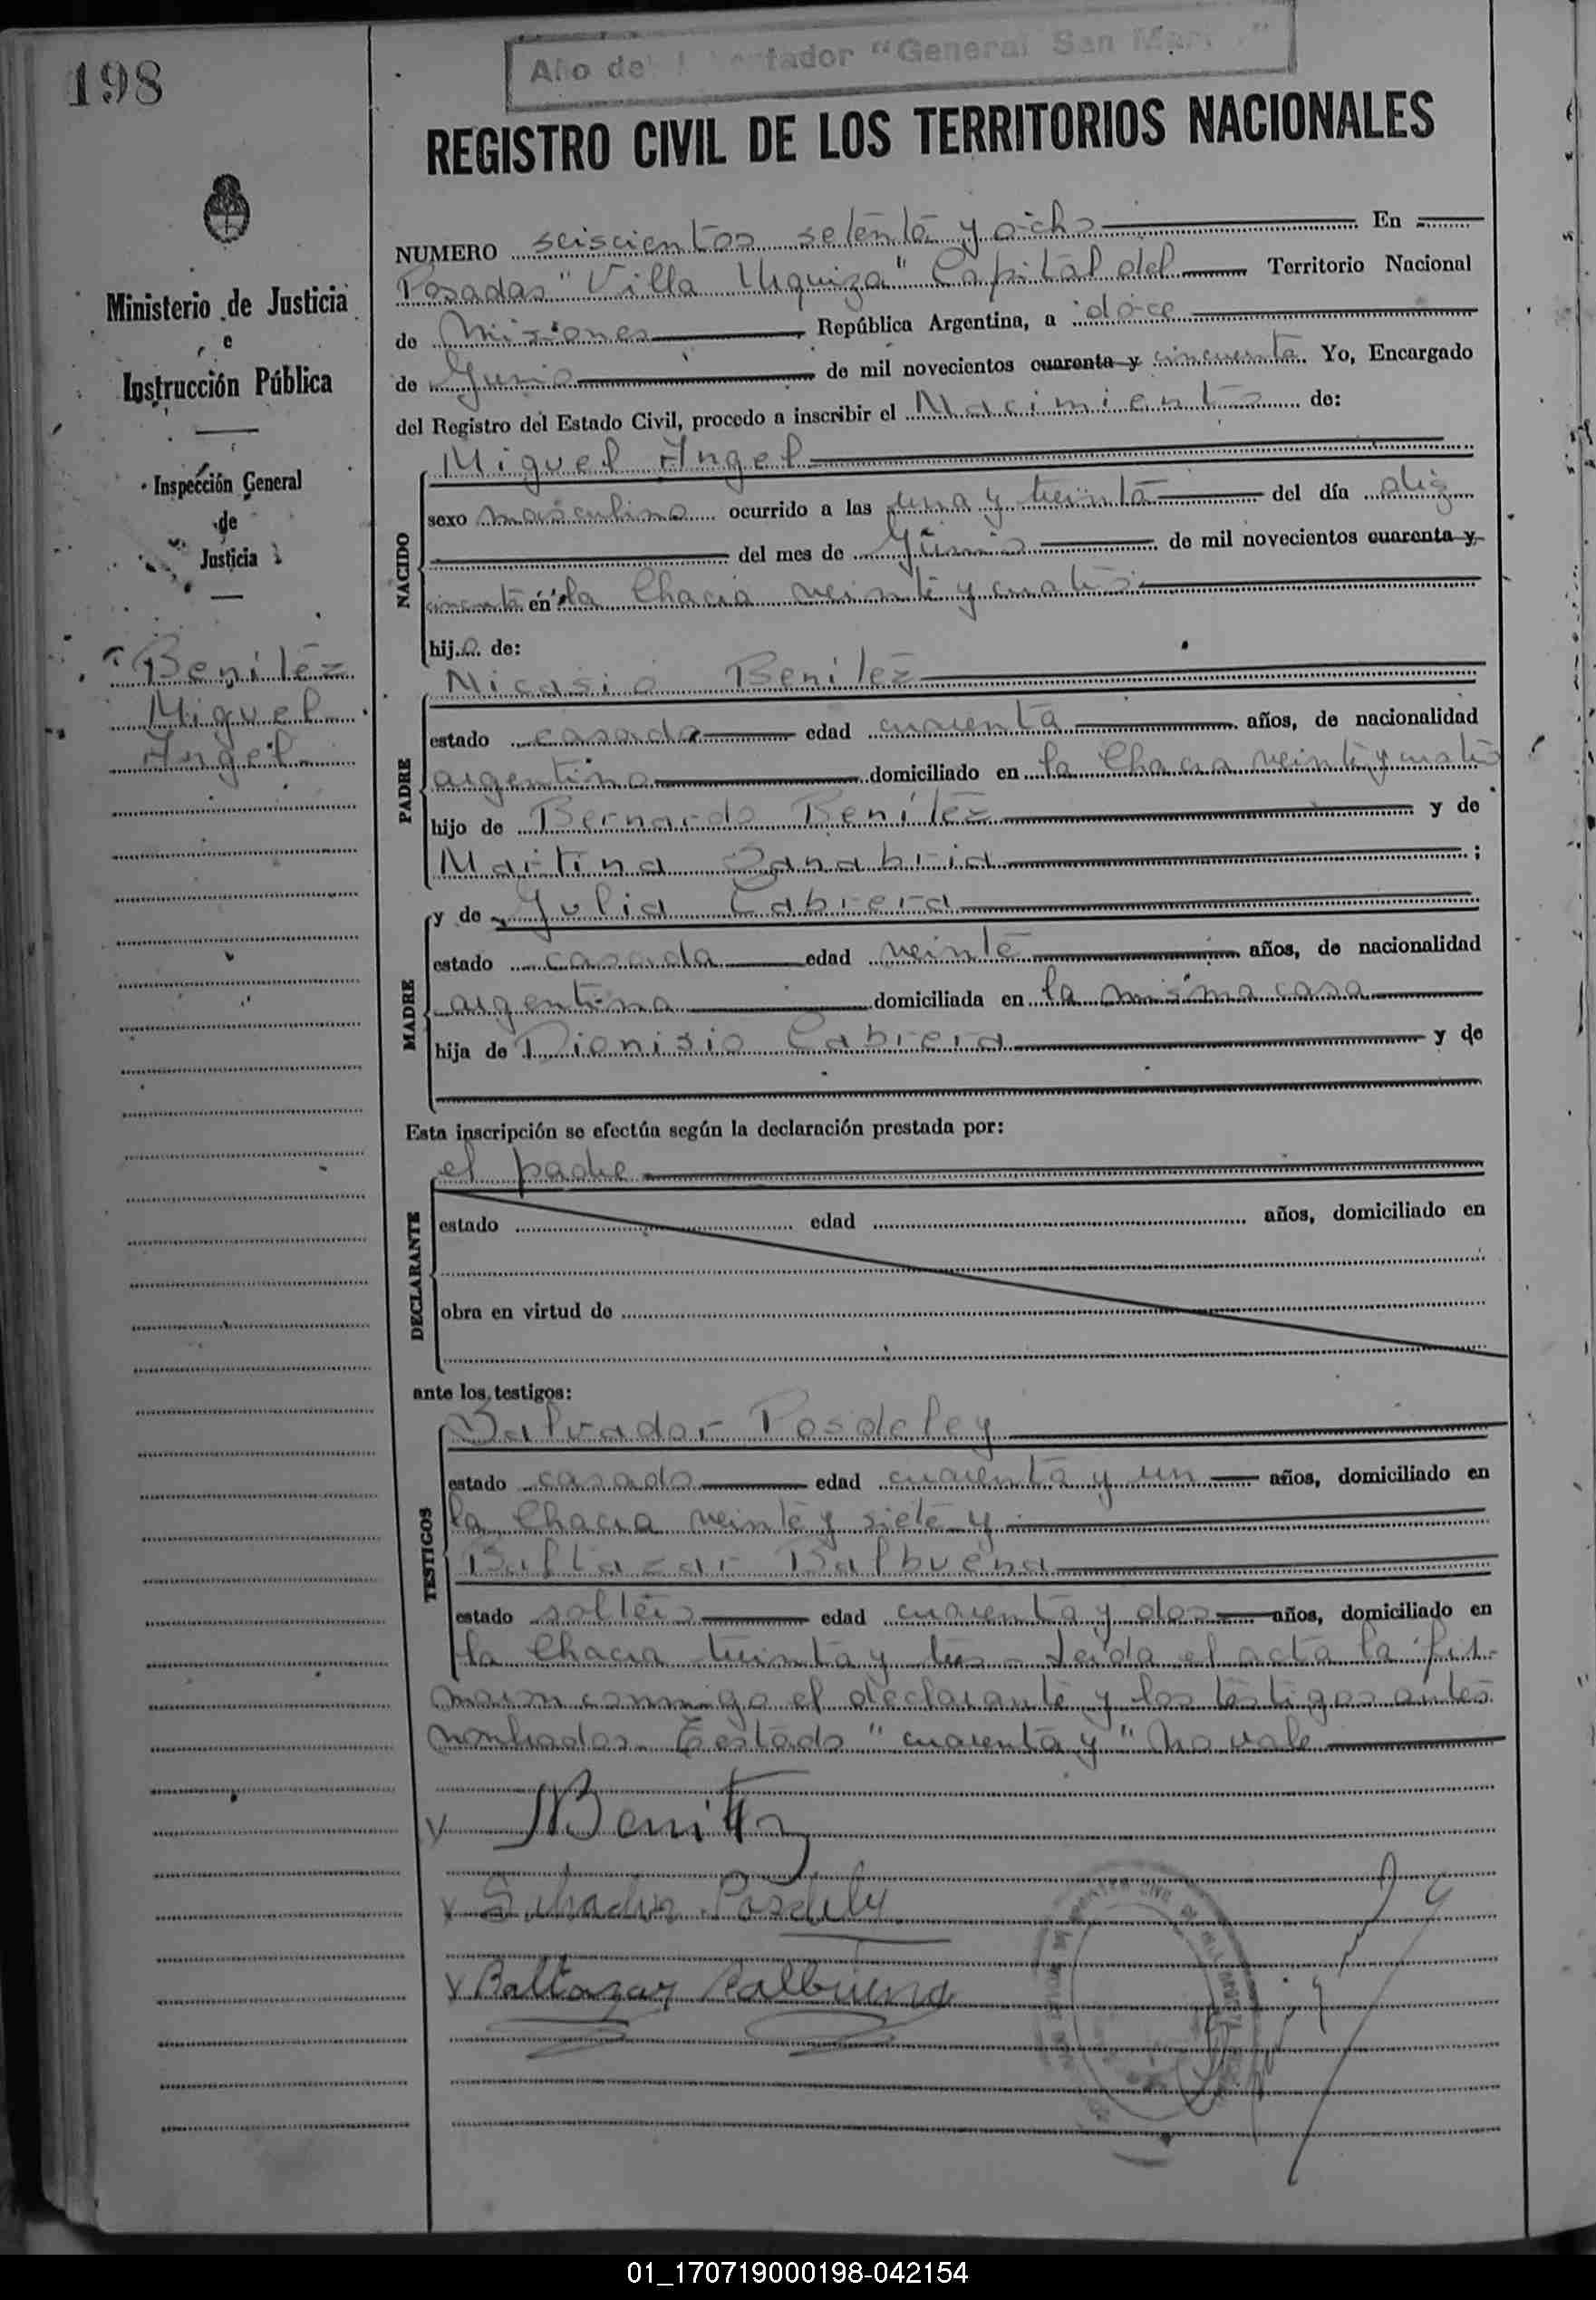 198
Año del Libertador "General San Martín"
REGISTRO CIVIL DE LOS TERRITORIOS NACIONALES
Ministerio de Justicia
e
Instrucción Pública
Inspección General
de
Justicia
Benítez
Miguel
Angel
NUMERO seiscientos setenta y ocho En
Posadas "Villa Urquiza" Capital del Territorio Nacional
de Misiones República Argentina, a doce
de Junio de mil novecientos cuarenta y cincuenta. Yo, Encargado
del Registro del Estado Civil, procedo a inscribir el Nacimiento de:
NACIDO
Miguel Angel
sexo masculino ocurrido a las una y treinta del día diez
del mes de Junio de mil novecientos cuarenta y
cincuenta en la Chacra veinte y cuatro
hijo de:
PADRE
Nicasio Benítez
estado casado edad cuarenta años, de nacionalidad
argentino domiciliado en la Chacra veinte y cuatro
hijo de Bernardo Benítez y de
Martina Sanabria ;
MADRE
y de Julia Cabrera
estado casada edad veinte años, de nacionalidad
argentina domiciliada en la misma casa
hija de Dionisio Cabrera y de
Esta inscripción se efectúa según la declaración prestada por:
DECLARANTE
el padre
estado edad años, domiciliado en
obra en virtud de
ante los testigos:
TESTIGOS
Salvador Posdeley
estado casado edad cuarenta y un años, domiciliado en
la Chacra veinte y siete y
Baltazar Balbuena
estado soltero edad cuarenta y dos años, domiciliado en
la Chacra treinta y tres - Leida el acta la fir-
man conmigo el declarante y los testigos antes
nombrados. Testado "cuarenta y" no vale
NBenitez
Salvador Posdeley
Baltazar Balbuena
01_170719000198-042154